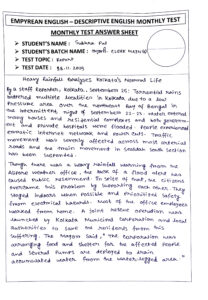 EMPYREAN ENGLISH – DESCRIPTIVE ENGLISH MONTHLY TEST
MONTHLY TEST ANSWER SHEET
➤ STUDENT'S NAME :
➤ STUDENT'S BATCH NAME : CLERK MAINS
➤ TEST TOPIC : Report
➤ TEST DATE :
Heavy Rainfall Paralyses Kolkata's Normal Life
By a staff Reporter, Kolkata, September 25: Torrential rains
drenched multiple localities in Kolkata due to a low
pressure area over the northwest Bay of Bengal in
the intermittent night of September 22-23. Water entered
many houses and residential complexes and both government
and private hospitals were flooded. People experienced
internet network and power cuts. Traffic
movement was severely affected across most arterial
roads and the train movement in Sealdah South section
has been suspended.
Though there was a heavy rainfall warning from the
Alipore weather office, the lack of a flood alert was
caused public resentment. In spite of that, the citizens
overcame this problem by supporting each other. They
stayed indoors when possible and prioritized safety
from electrical hazards. Most of the office employees
worked from home. A joint rescue operation was
launched by Kolkata Municipal Corporation and local
authorities to save the residents from this
suffering. The Mayor said, "The Corporation was
arranging food and shelter for the affected people
and several pumps are deployed to drain
accumulated water from the water-logged area."